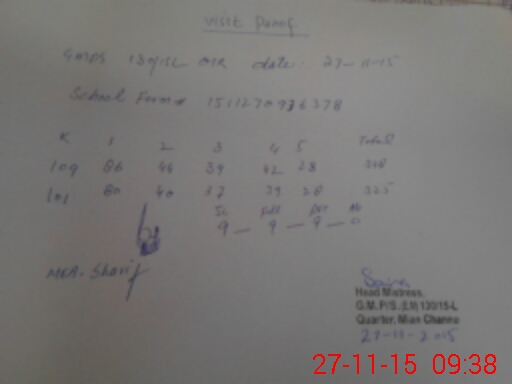 Visit Proof
GMPS 130/15L date: 27-11-15
School Form # 1511270936378
K 1 2 3 4 5 Total
109 86 44 39 42 28 348
101 80 40 37 39 28 325
9 — 9 — 9 — 0
M&A. Sharif
Head Mistress,
G.M.P/S. (E.M) 130/15-L
Quarter, Mian Channu
27-11-2015
27-11-15 09:38